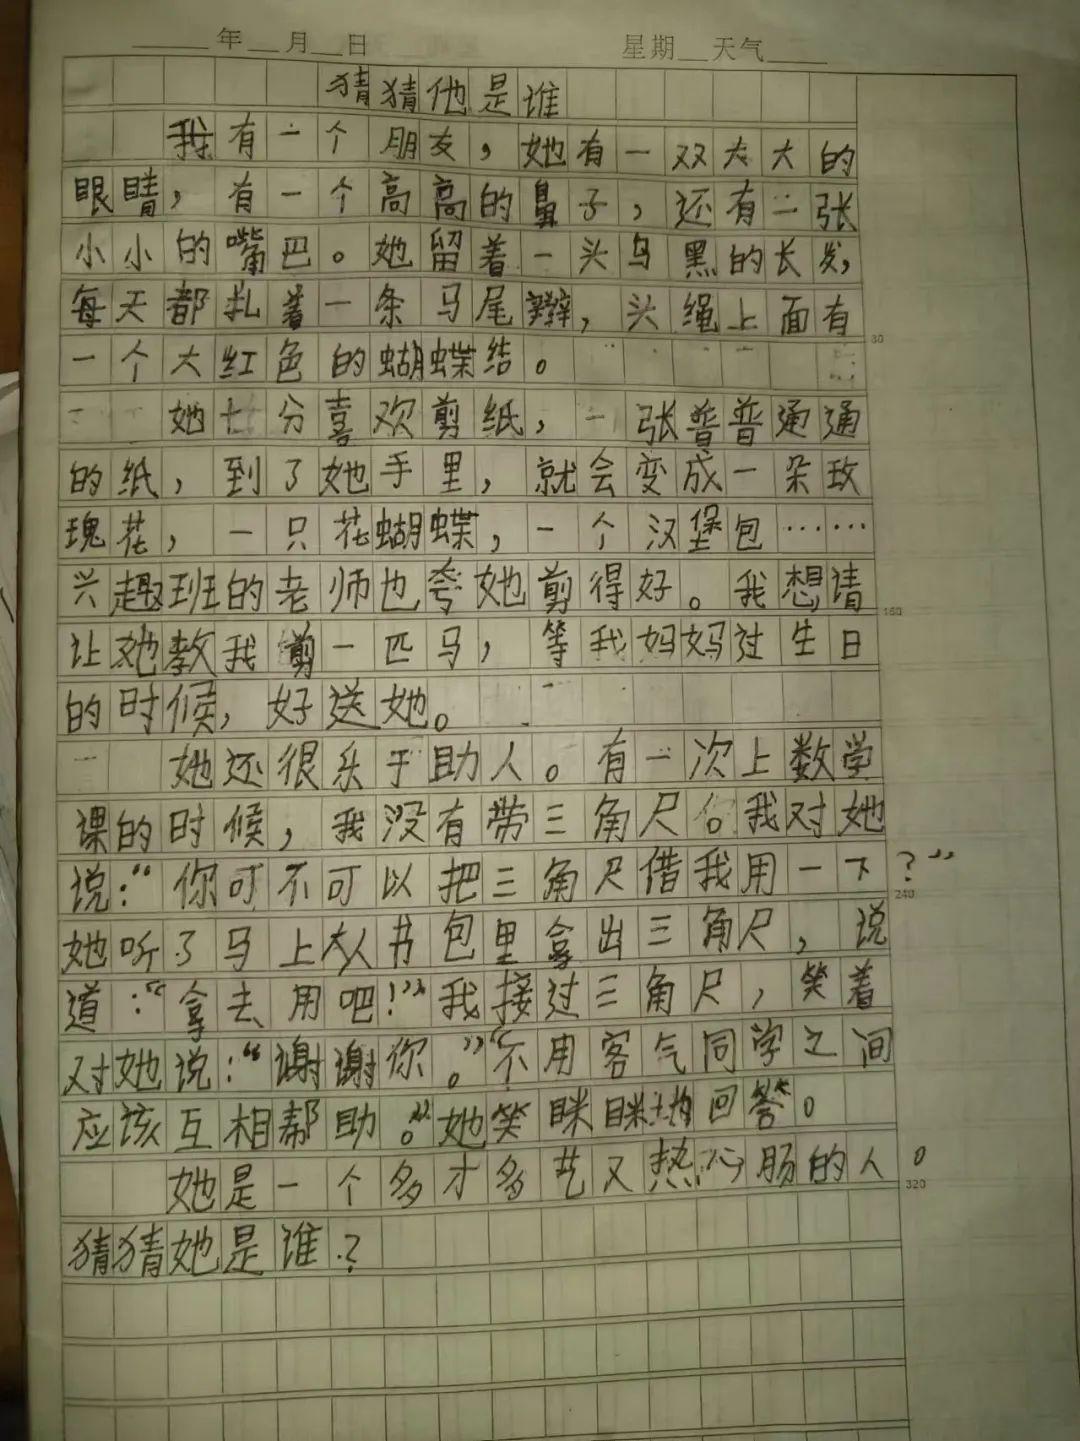 年 月 日 星期 天气
猜猜他是谁
我有一个朋友，她有一双大大的
眼睛，有一个高高的鼻子，还有一张
小小的嘴巴。她留着一头乌黑的长发，
每天都扎着一条马尾辫，头绳上面有
30
一个大红色的蝴蝶结。
她十分喜欢剪纸，一张普普通通
的纸，到了她手里，就会变成一朵玫
瑰花，一只花蝴蝶，一个汉堡包……
兴趣班的老师也夸她剪得好。我想请
160
让她教我剪一匹马，等我妈妈过生日
的时候，好送她。
她还很乐于助人。有一次上数学
课的时候，我没有带三角尺。我对她
说：“你可不可以把三角尺借我用一下？”
240
她听了马上从书包里拿出三角尺，说
道：“拿去用吧！”我接过三角尺，笑着
对她说：“谢谢你。”“不用客气同学之间
应该互相帮助。”她笑眯眯地回答。
她是一个多才多艺又热心肠的人。
320
猜猜她是谁？